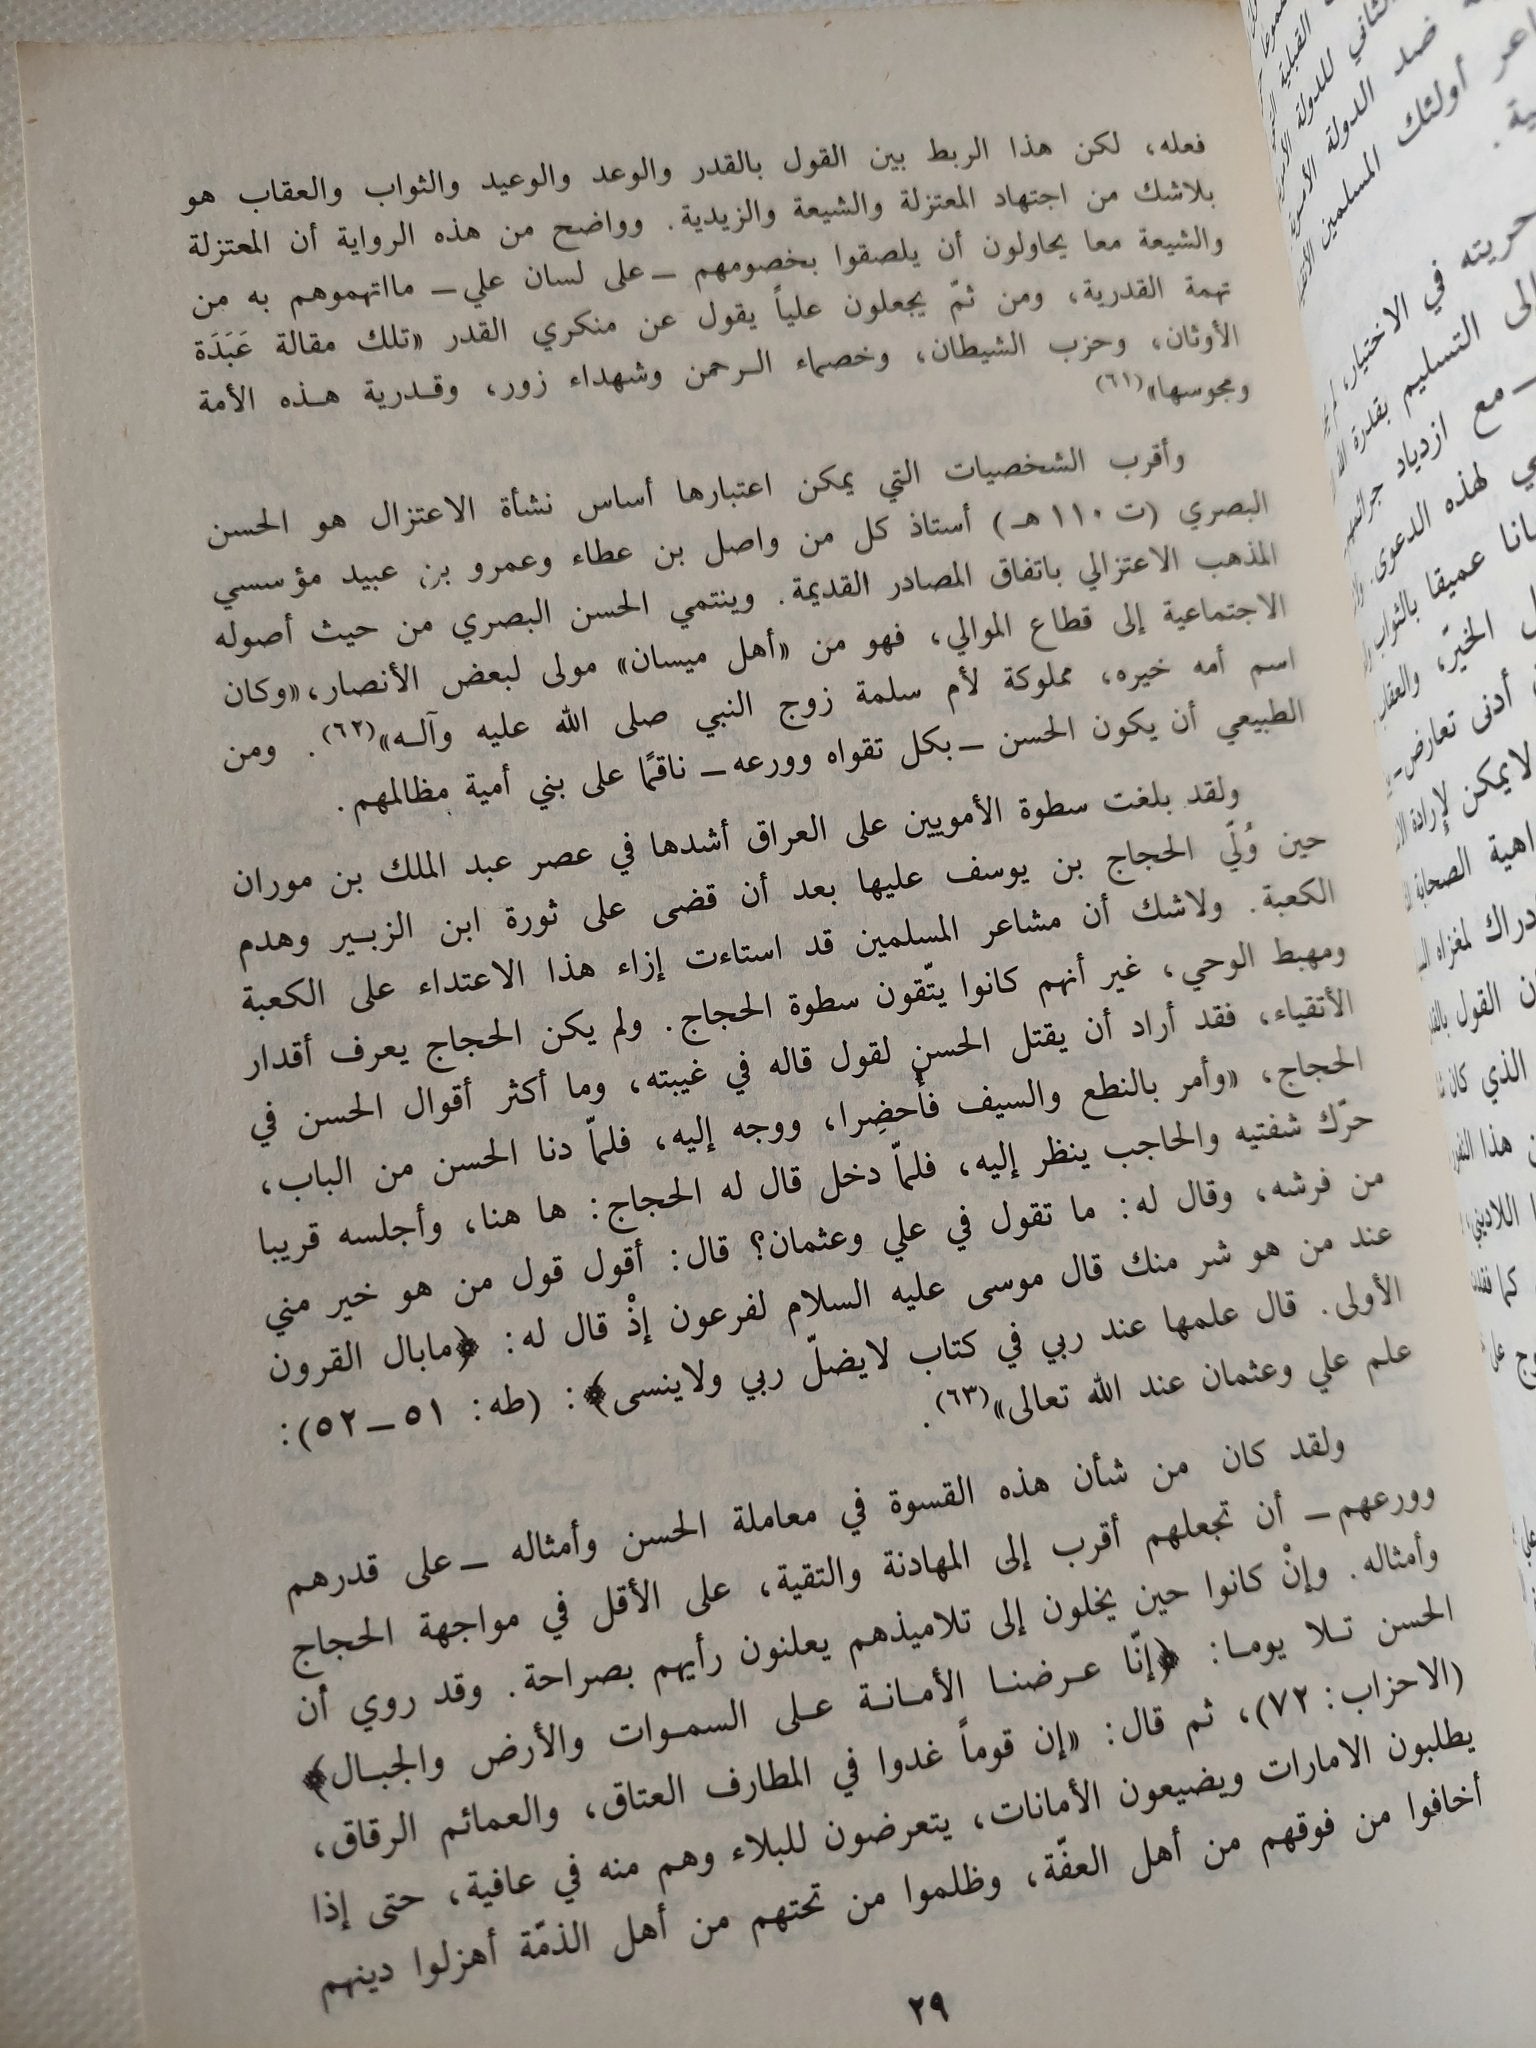 فعله، لكن هذا الربط بين القول بالقدر والوعد والوعيد والثواب والعقاب هو
بلاشك من اجتهاد المعتزلة والشيعة والزيدية. وواضح من هذه الرواية أن المعتزلة
والشيعة معا يحاولون أن يلصقوا بخصومهم ــ على لسان علي ــ مااتهموهم به من
تهمة القدرية، ومن ثمّ يجعلون علياً يقول عن منكري القدر «تلك مقالة عَبَدَة
الأوثان، وحزب الشيطان، وخصماء الـرحمن وشهداء زور، وقـدرية هـذه الأمة
ومجوسها»(٦١)
وأقرب الشخصيات التي يمكن اعتبارها أساس نشأة الاعتزال هو الحسن
البصري (ت ١١٠ هـ) أستاذ كل من واصل بن عطاء وعمرو بن عبيد مؤسسي
المذهب الاعتزالي باتفاق المصادر القديمة. وينتمي الحسن البصري من حيث أصوله
الاجتماعية إلى قطاع الموالي، فهو من «أهل ميسان» مولى لبعض الأنصار، «وكان
اسم أمه خيره، مملوكة لأم سلمة زوج النبي صلى الله عليه وآلـه»(٦٢). ومن
الطبيعي أن يكون الحسن ــ بكل تقواه وورعه ــ ناقمًا على بني أمية مظالمهم.
ولقد بلغت سطوة الأمويين على العراق أشدها في عصر عبد الملك بن موران
حين وُلّي الحجاج بن يوسف عليها بعد أن قضى على ثورة ابن الزبـير وهدم
الكعبة. ولاشك أن مشاعر المسلمين قد استاءت إزاء هذا الاعتداء على الكعبة
ومهبط الوحي، غير أنهم كانوا يتّقون سطوة الحجاج. ولم يكن الحجاج يعرف أقدار
الأتقياء، فقد أراد أن يقتل الحسن لقول قاله في غيبته، وما أكثر أقوال الحسن في
الحجاج، «وأمر بالنطع والسيف فأُحضِرا، ووجه إليه، فلمّا دنا الحسن من الباب،
حرّك شفتيه والحاجب ينظر إليه، فلمّا دخل قال له الحجاج: ها هنا، وأجلسه قريبا
من فرشه، وقال له: ما تقول في علي وعثمان؟ قال: أقول قول من هو خير مني
عند من هو شر منك قال موسى عليه السلام لفرعون إذْ قال له: ﴿مابال القرون
الأولى. قال علمها عند ربي في كتاب لايضلّ ربي ولاينسى﴾: (طه: ٥١ــ٥٢):
علم علي وعثمان عند الله تعالى»(٦٣).
ولقد كان من شأن هذه القسوة في معاملة الحسن وأمثاله ــ على قدرهم
وورعهم ــ أن تجعلهم أقرب إلى المهادنة والتقية، على الأقل في مواجهة الحجاج
وأمثاله. وإنْ كانوا حين يخلون إلى تلاميذهم يعلنون رأيهم بصراحة. وقد روي أن
الحسن تـلا يومـا: ﴿إنّا عـرضنـا الأمـانـة عـلى السمـوات والأرض والجبـال﴾
(الاحزاب: ٧٢)، ثم قال: «إن قوماً غدوا في المطارف العتاق، والعمائم الرقاق،
يطلبون الامارات ويضيعون الأمانات، يتعرضون للبلاء وهم منه في عافية، حتى إذا
أخافوا من فوقهم من أهل العفّة، وظلموا من تحتهم من أهل الذمّة أهزلوا دينهم
٢٩